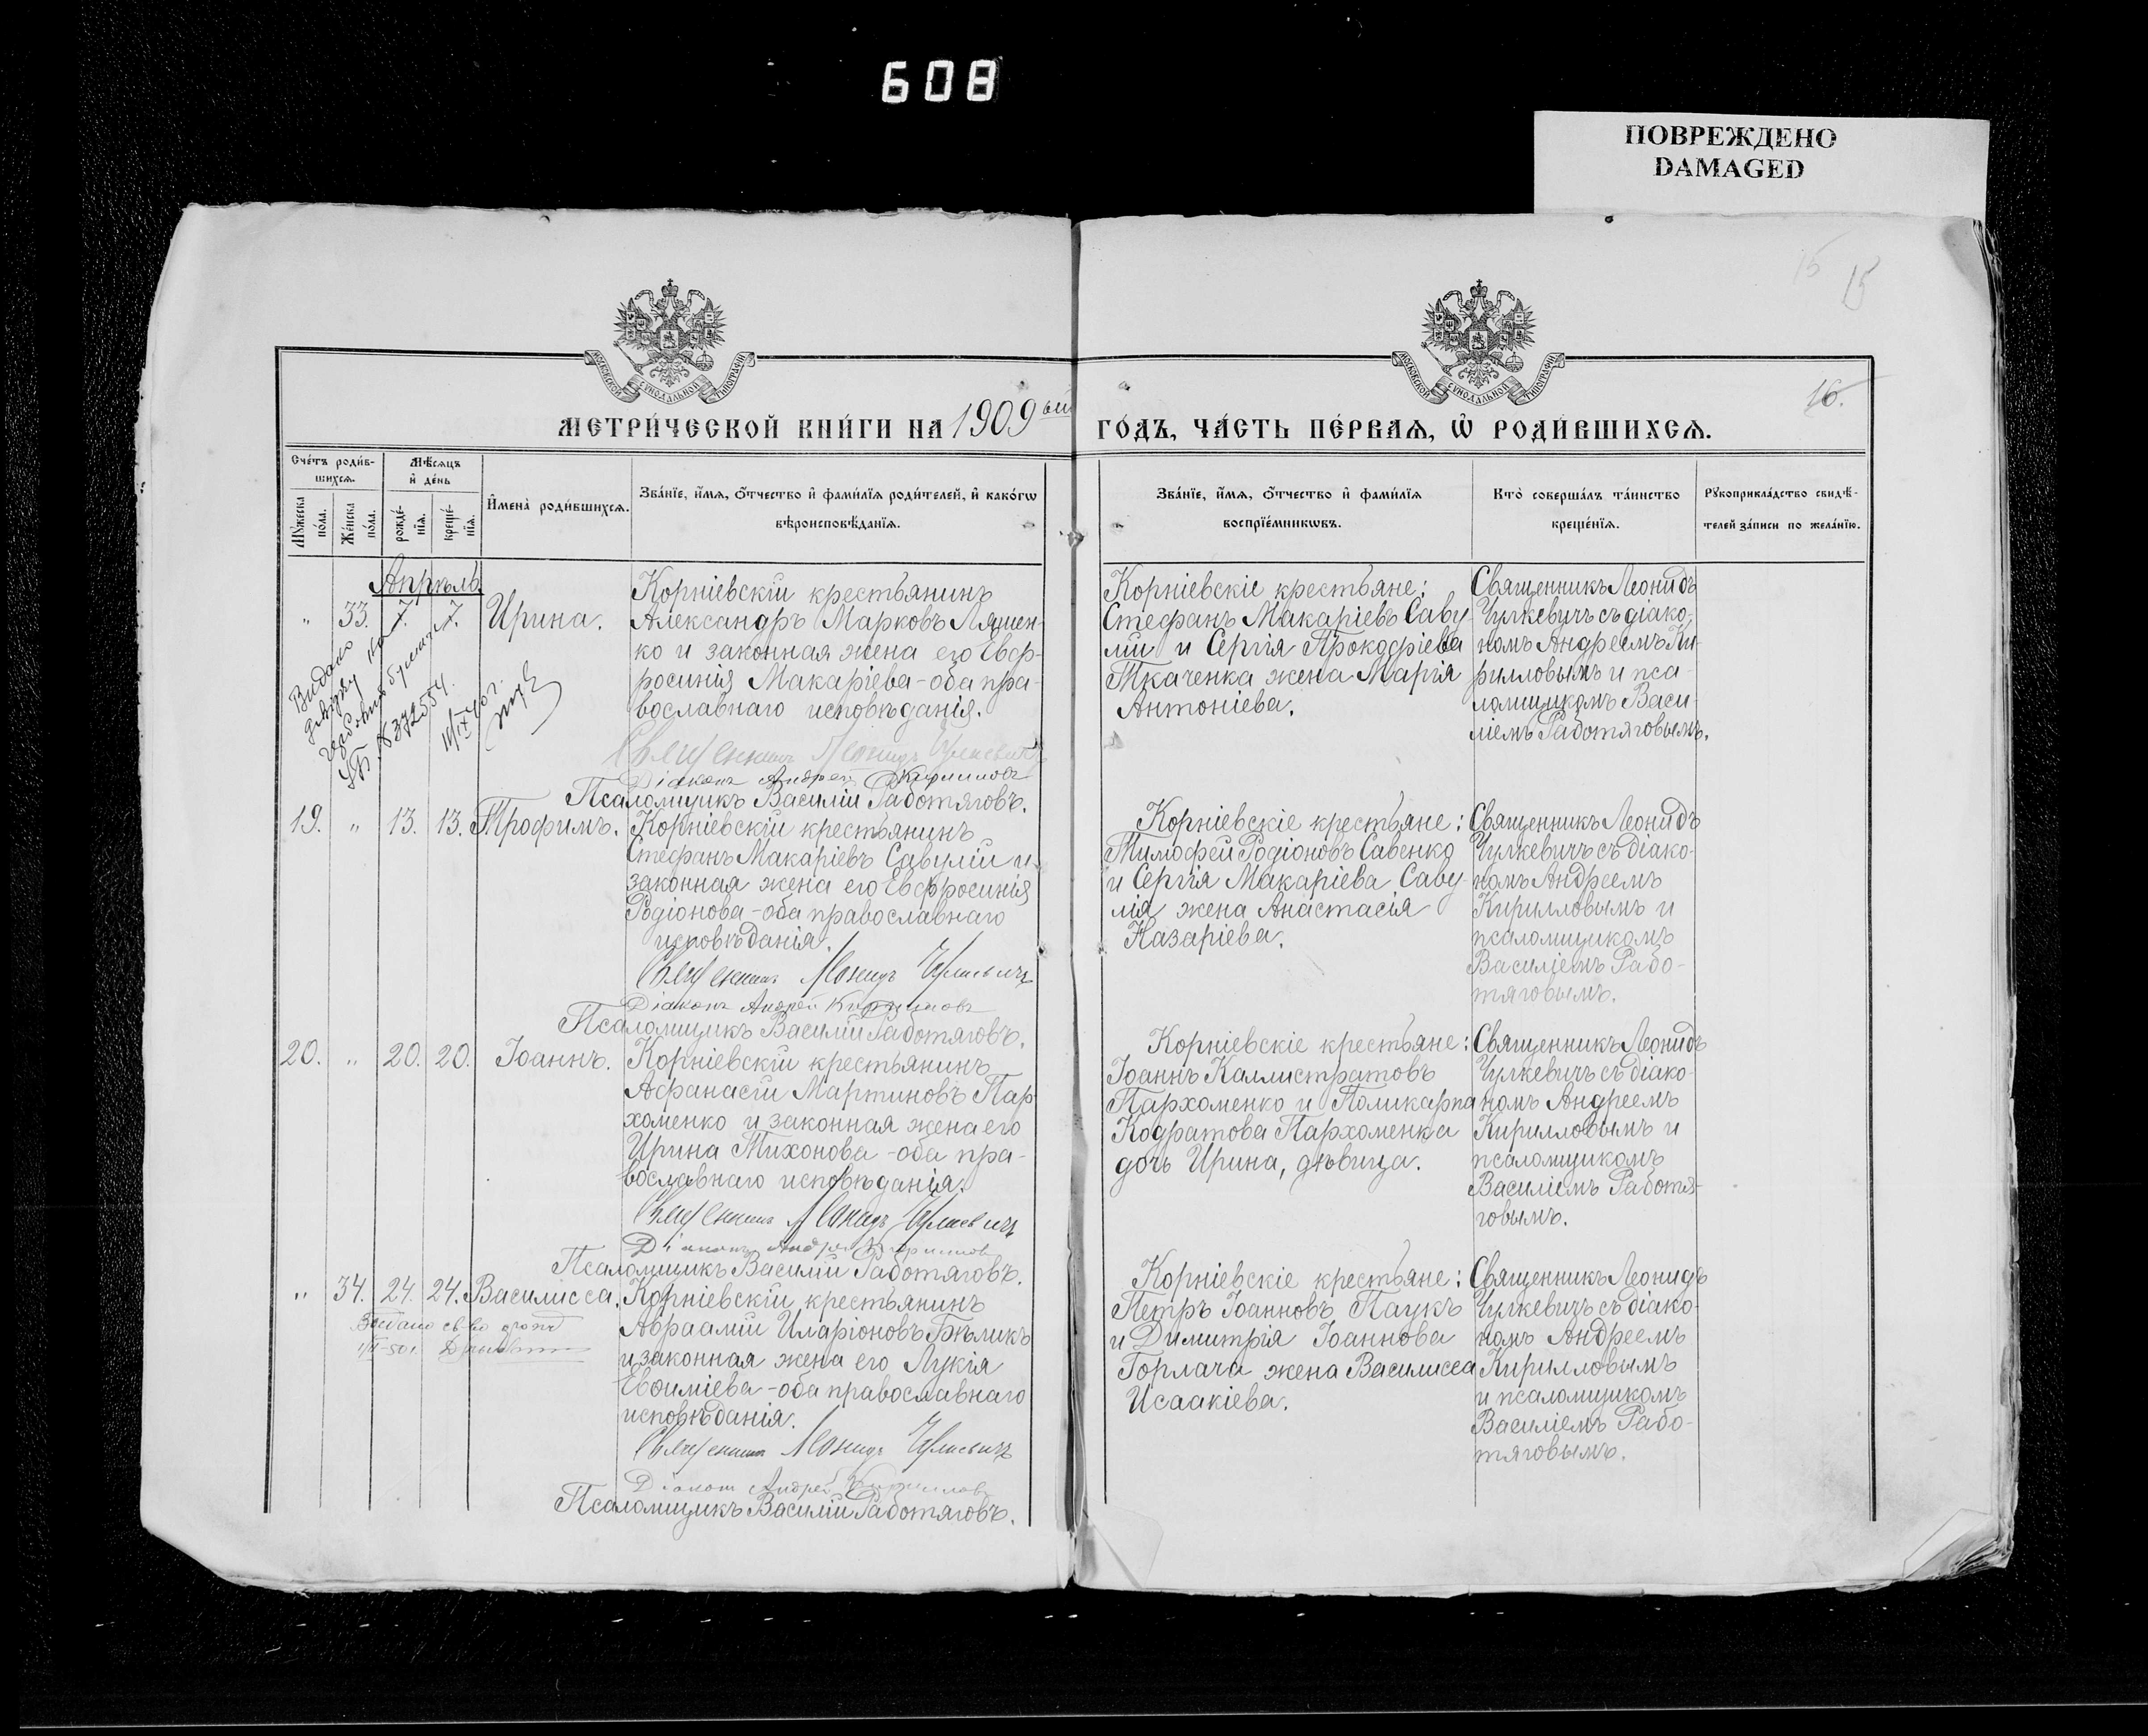 608
ПОВРЕЖДЕНО
DAMAGED
15
15
16.
МОСКОВСКОЙ СѴНОДАЛЬНОЙ ТИПОГРАФІИ
МОСКОВСКОЙ СѴНОДАЛЬНОЙ ТИПОГРАФІИ
МЕТРИ́ЧЕСКОЙ КНИ́ГИ НА 1909ый ГО́ДЪ, ЧА́СТЬ ПЕ́РВАѦ, Ѡ҆ РОДИ́ВШИХСѦ.
Сче́тъ роди́в-
шихсѧ.
Мꙋ́жеска по́ла.
Же́нска по́ла.
Мѣ́сѧцъ
и҆ де́нь
рожде́-
нїѧ.
креще́-
нїѧ.
И҆мена̀ роди́вшихсѧ.
Зва́нїе, и҆́мѧ, ѻ҆́тчество и҆ фами́лїѧ роди́телей, и҆ како́гѡ
вѣроисповѣ́данїѧ.
Зва́нїе, и҆́мѧ, ѻ҆́тчество и҆ фами́лїѧ
воспрїе́мникѡвъ.
Кто̀ соверша́лъ та́инство
креще́нїѧ.
Рꙋкоприкла́дство свидѣ́-
телей за́писи по жела́нїю.
Апрѣль
„ 33. 7. 7. Ирина.
Корніевскій крестьянинъ
Александръ Марковъ Ляшен-
ко и законная жена его Евф-
росинія Макаріева - оба пра-
вославнаго исповѣданія.
Священникъ Леонидъ Чулкевичъ
Діаконъ Андрей Кирилловъ
Псаломщикъ Василій Работяговъ.
Видано
довідку на
372554.
11/IX 40 г.
Корніевскіе крестьяне:
Стефанъ Макаріевъ Саву-
лій и Сергія Прокофіева
Ткаченка жена Марія
Антоніева.
Священникъ Леонидъ
Чулкевичъ съ діако-
номъ Андреемъ Ки-
рилловымъ и пса-
ломщикомъ Васи-
ліемъ Работяговымъ.
19. „ 13. 13. Трофимъ.
Корніевскій крестьянинъ
Стефанъ Макаріевъ Савулій и
законная жена его Евфросинія
Родіонова - оба православнаго
исповѣданія.
Священникъ Леонидъ Чулкевичъ
Діаконъ Андрей Кирилловъ
Псаломщикъ Василій Работяговъ.
Корніевскіе крестьяне:
Тимофей Родіоновъ Савенко
и Сергія Макаріева Саву-
лія жена Анастасія
Назаріева.
Священникъ Леонидъ
Чулкевичъ съ діако-
номъ Андреемъ
Кирилловымъ и
псаломщикомъ
Василіемъ Рабо-
тяговымъ.
20. „ 20. 20. Іоаннъ.
Корніевскій крестьянинъ
Афанасій Мартиновъ Пар-
хоменко и законная жена его
Ирина Тихонова - оба пра-
вославнаго исповѣданія.
Священникъ Леонидъ Чулкевичъ
Діаконъ Андрей Кирилловъ
Псаломщикъ Василій Работяговъ.
Корніевскіе крестьяне:
Іоаннъ Каллистратовъ
Пархоменко и Поликарпа
Кодратова Пархоменка
дочь Ирина, дѣвица.
Священникъ Леонидъ
Чулкевичъ съ діако-
номъ Андреемъ
Кирилловымъ и
псаломщикомъ
Василіемъ Работя-
говымъ.
„ 34. 24. 24. Василисса.
Корніевскій крестьянинъ
Авраамій Иларіоновъ Бѣликъ
и законная жена его Лукія
Евѳиміева - оба православнаго
исповѣданія.
Священникъ Леонидъ Чулкевичъ
Діаконъ Андрей Кирилловъ
Псаломщикъ Василій Работяговъ.
Видано св-во
Корніевскіе крестьяне:
Петръ Іоанновъ Паукъ
и Димитрія Іоаннова
Горлача жена Василисса
Исаакіева.
Священникъ Леонидъ
Чулкевичъ съ діако-
номъ Андреемъ
Кирилловымъ
и псаломщикомъ
Василіемъ Рабо-
тяговымъ.